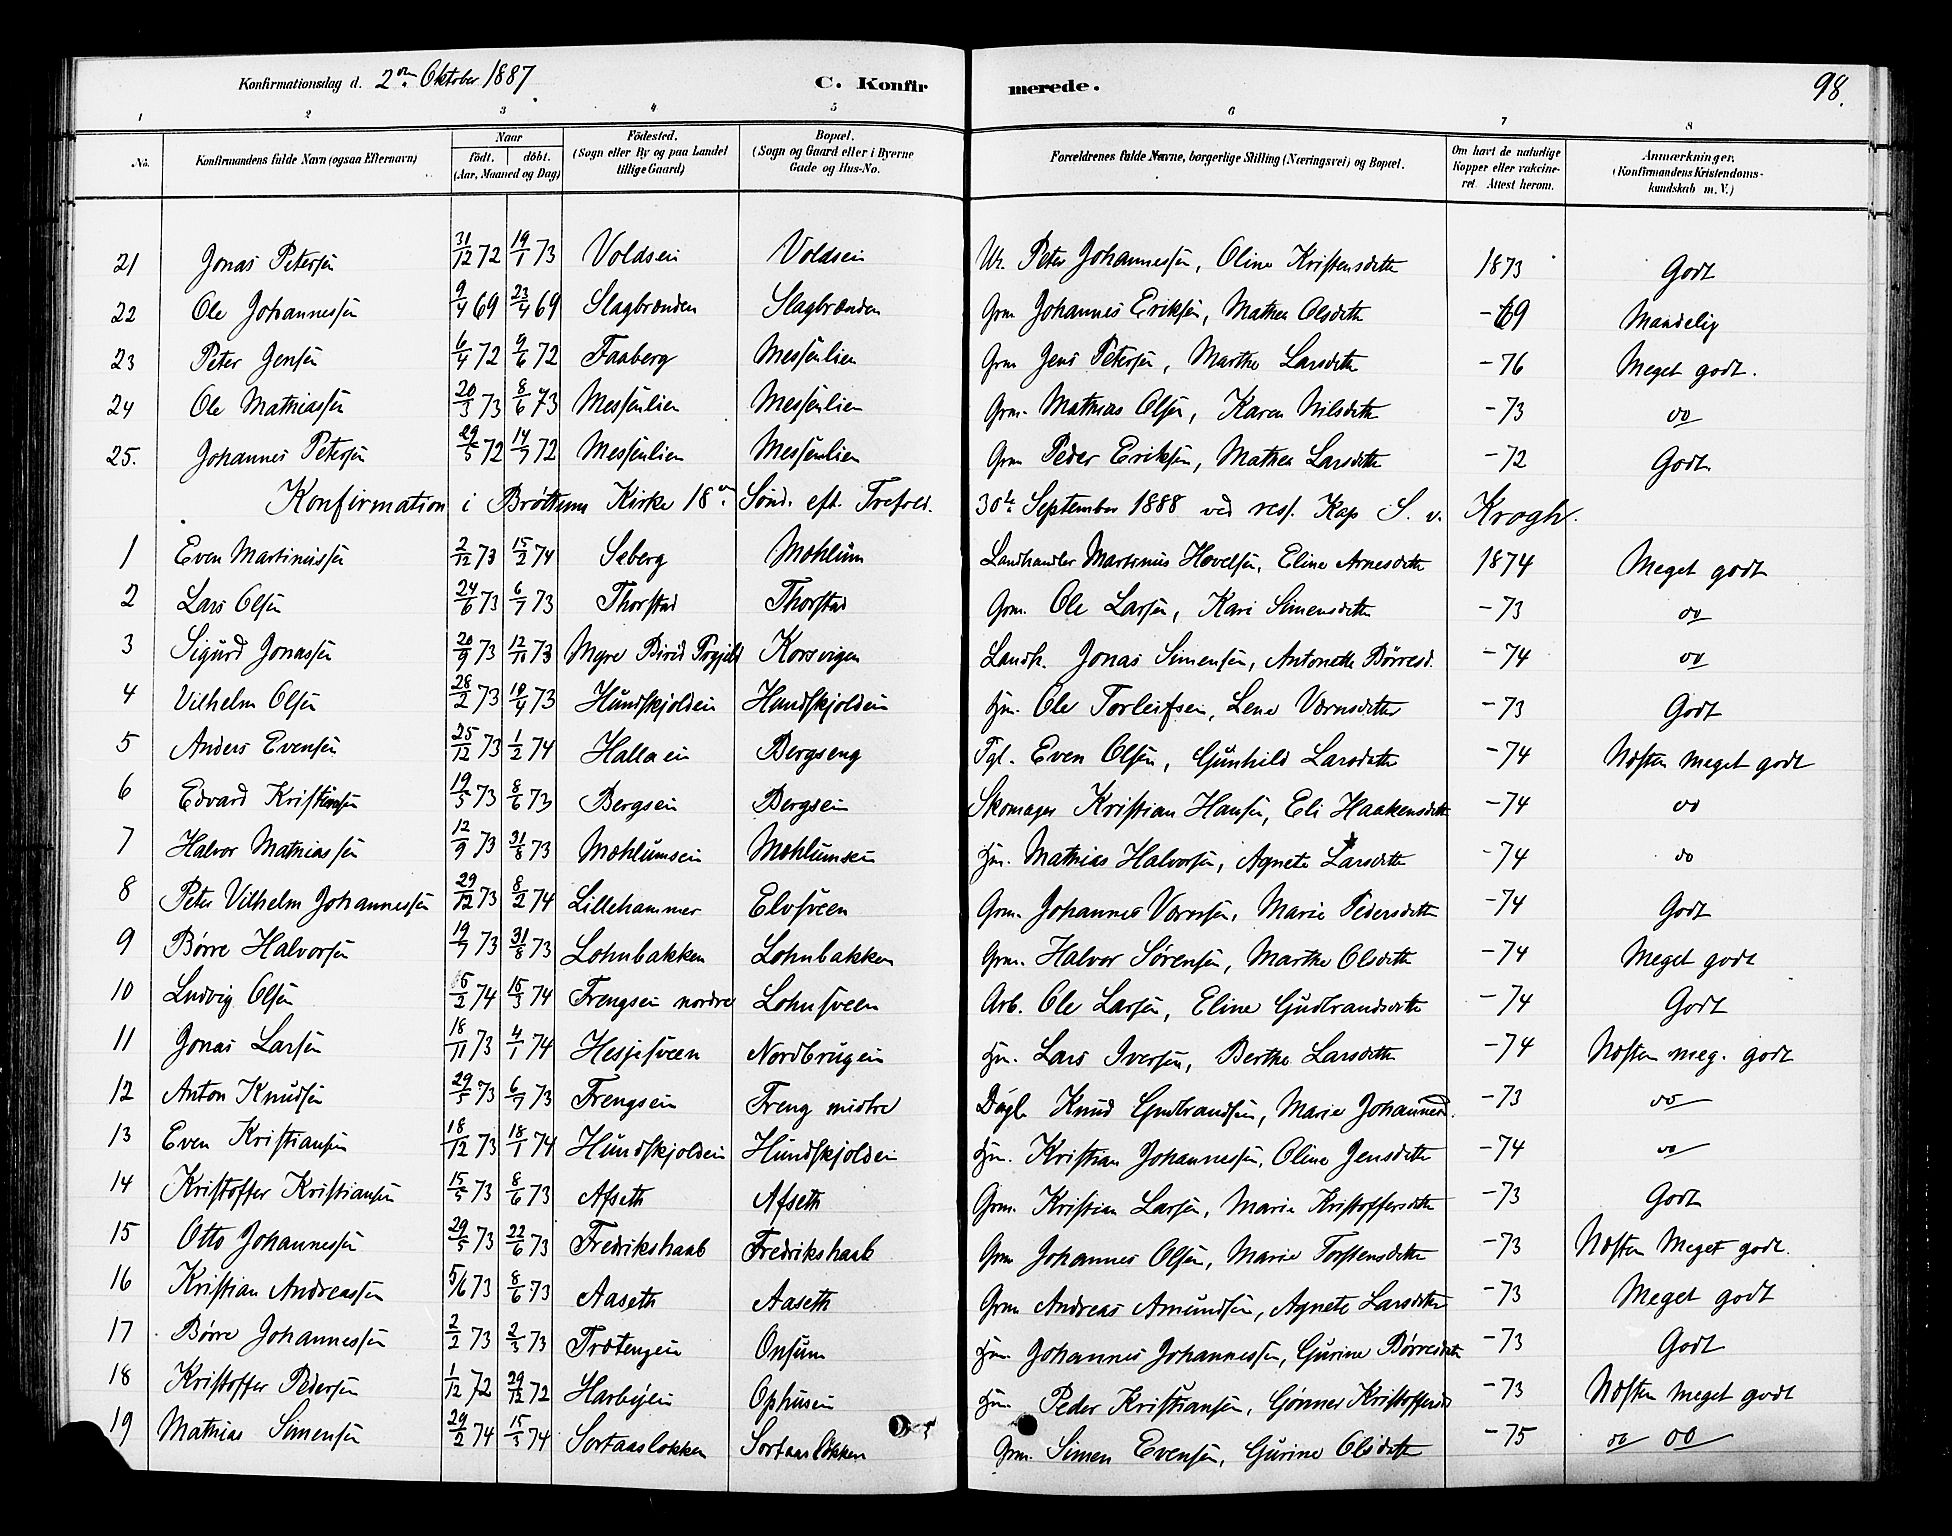 Konfirmationsdag d. 2den Oktober 1887 C. Konfirmerede. 98.
1 2 3 4 5 6 7 8
No. Konfirmandens fulde Navn (ogsaa Efternavn) Naar födt. döbt. (Aar, Maaned og Dag) Födested. (Sogn eller By og paa Landet tillige Gaard) Bopæl. (Sogn og Gaard eller i Byerne Gade og Hus-No. Forældrenes fulde Navne, borgerlige Stilling (Næringsvei) og Bopæl. Om havt de naturlige Kopper eller vakcineret. Attest herom. Anmærkninger. (Konfirmandens Kristendomskundskab m. V.)
21 Jonas Petersen 31/12 72 19/1 73 Voldsei Voldsei Peter Johannessen, Oline Kristensdatter 1873 Godt
22 Ole Johannessen 9/4 69 23/4 69 Slagbrænden Slagbrænden Grm Johannes Eriksen, Mathea Olsdatter -69 Maadelig
23 Peter Jensen 6/4 72 9/6 72 Faaberg Messenlien Grm Jens Petersen, Marthe Larsdatter -76 Meget godt.
24 Ole Mathiassen 20/3 73 8/6 73 Messenlien Messenlien Grm. Mathias Olsen, Karen Nilsdatter -73 do
25. Johannes Petersen 29/5 72 14/7 72 Messenlien Messenlien Grm Peder Eriksen, Mathea Larsdatter -72 Godt
Konfirmation i Brøttum Kirke 18de Sønd. eft. Trefold. 30te September 1888 ved res. Kap S. v. Krogh.
1 Even Martinussen 2/12 73 15/2 74 Seberg Mohlum Landhandler Martinus Hovelsen, Eline Arnesdatter 1874 Meget godt
2 Lars Olsen 24/6 73 6/7 73 Thorstad Thorstad Grm. Ole Larsen, Kari Simensdatter -73 do
3 Sigurd Jonassen 20/9 73 12/10 73 Myre Birid Prgjeld Korsvigen Landh. Jonas Simensen, Antonette Børresd. -74 do
4 Vilhelm Olsen 28/2 73 10/4 73 Hundskjoldei Hundskjoldei Hm. Ole Torleifsen, Lene Værnsdatter -73 Godt
5 Anders Evensen 25/12 73 1/2 74 Hallaei Bergseng Tgl. Even Olsen, Gunhild Larsdatter -74 Næsten meget godt
6 Edvard Kristiansen 19/5 73 8/6 73 Bergsei Bergsei Skomager Kristian Hansen, Eli Haakensdatter -74 do
7 Halvor Mathiassen 12/9 73 31/8 73 Mohlumsei Mohlumsei Hm. Mathias Halvorsen, Agnete Larsdatter -74 do
8 Peter Vilhelm Johannessen 29/12 73 8/2 74 Lillehammer Elvsveen Grm. Johannes Værnsen, Marie Pedersdatter -74 Godt
9 Børre Halvorsen 19/7 73 31/8 73 Lohnbakken Lohnbakken Grm. Halvor Sørensen, Marthe Olsdatter -74 Meget godt
10 Ludvig Olsen 6/2 74 15/3 74 Frengsei nordre Lohnsveen Arb. Ole Larsen, Eline Gudbrandsdatter -74 Godt
11 Jonas Larsen 18/11 73 4/1 74 Hesjesveen Nordbrugei Hm. Lars Iversen, Berthe Larsdatter -74 Næsten meg. godt
12 Anton Knudsen 29/5 73 6/7 73 Frengsei Freng midtre Dagl. Knud Gudbrandsen, Marie Johannesd. -73 do
13 Even Kristiansen 18/12 73 18/1 74 Hundskjoldei Hundskjoldei Hm. Kristian Johannessen, Oline Jensdatter -74 do
14 Kristoffer Kristiansen 15/5 73 8/6 73 Afseth Afseth Grm. Kristian Larsen, Marie Kristoffersdatter -73 Godt
15 Otto Johannessen 29/5 73 22/6 73 Fredrikshaab Fredrikshaab Grm Johannes Olsen, Marie Torstensdatter -73 Næsten Meget godt.
16 Kristian Andreassen 5/6 73 8/6 73 Aaseth Aaseth Grm Andreas Amundsen, Agnete Larsdatter -73 Meget godt
17 Børre Johannessen 2/2 73 2/3 73 Trøtengei Onsum Hm Johannes Johannessen, Gurine Børresdatter -73 Godt
18 Kristoffer Pedersen 1/12 72 29/12 72 Harbojei Ophusei Hm Peder Kristiansen, Gønner Kristoffersd. -73 Næsten meget godt
19 Mathias Simensen 29/2 74 15/3 74 Sortaasløkken Sortaasløkken Grm. Simen Evensen, Gurine Olsdatter -75 do do